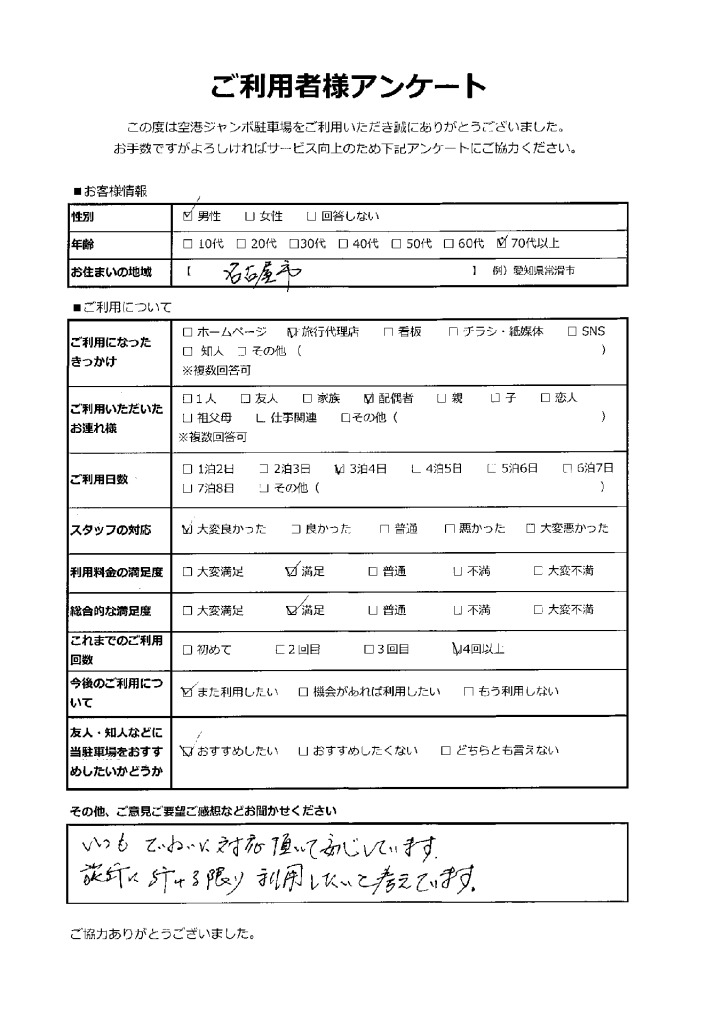 ご利用者様アンケート
この度は空港ジャンボ駐車場をご利用いただき誠にありがとうございました。
お手数ですがよろしければサービス向上のため下記アンケートにご協力ください。
■お客様情報
性別 ☑ 男性 □ 女性 □ 回答しない
年齢 □ 10代 □ 20代 □30代 □ 40代 □ 50代 □ 60代 ☑ 70代以上
お住まいの地域 【 名古屋市 】 例）愛知県常滑市
■ご利用について
ご利用になった
きっかけ
□ ホームページ ☑ 旅行代理店 □ 看板 □ チラシ・紙媒体 □ SNS
□ 知人 □ その他（ ）
※複数回答可
ご利用いただいた
お連れ様
□1人 □ 友人 □ 家族 ☑ 配偶者 □ 親 □ 子 □ 恋人
□ 祖父母 □ 仕事関連 □その他（ ）
※複数回答可
ご利用日数
□ 1泊2日 □ 2泊3日 ☑ 3泊4日 □ 4泊5日 □ 5泊6日 □ 6泊7日
□ 7泊8日 □ その他（ ）
スタッフの対応 ☑ 大変良かった □ 良かった □ 普通 □ 悪かった □ 大変悪かった
利用料金の満足度 □ 大変満足 ☑ 満足 □ 普通 □ 不満 □ 大変不満
総合的な満足度 □ 大変満足 ☑ 満足 □ 普通 □ 不満 □ 大変不満
これまでのご利用
回数
□ 初めて □ 2回目 □ 3回目 ☑4回以上
今後のご利用につ
いて
☑ また利用したい □ 機会があれば利用したい □ もう利用しない
友人・知人などに
当駐車場をおすす
めしたいかどうか
☑ おすすめしたい □ おすすめしたくない □ どちらとも言えない
その他、ご意見ご要望ご感想などお聞かせください
いつも ていねいに対応頂いて 感じています。
旅行に行ける限り 利用したいと考えています。
ご協力ありがとうございました。